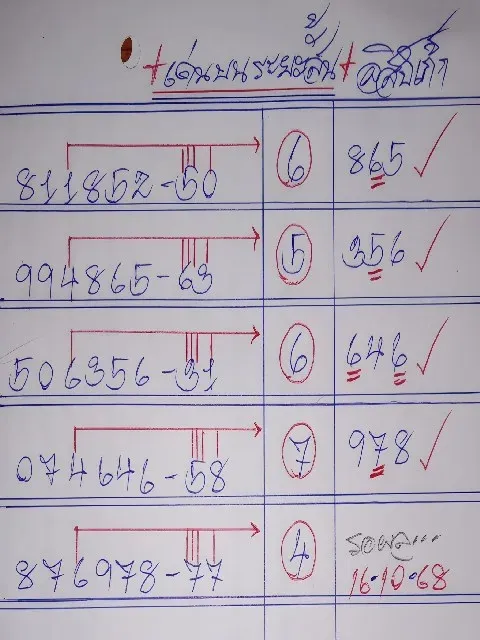 +เด่นบนระยะสั้น+
811852-50 6 865
994865-63 5 356
506356-31 6 646
074646-58 7 978
876978-77 4 รอผล...
16·10·68